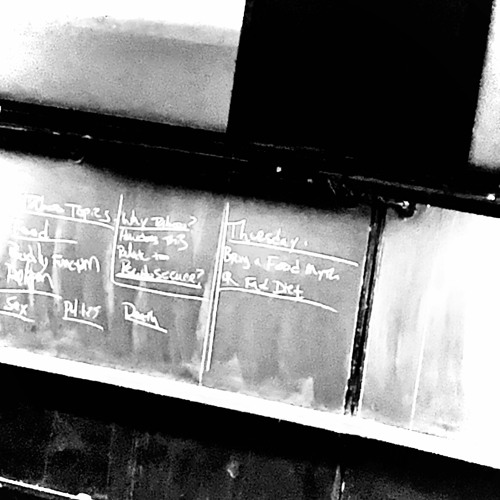 Topics
Food
Bodily Function
Religion
Sex Politics Death
Why Taboo?
How does this
Relate to
Thursday.
Bring a Food Myth
or Fad Diet